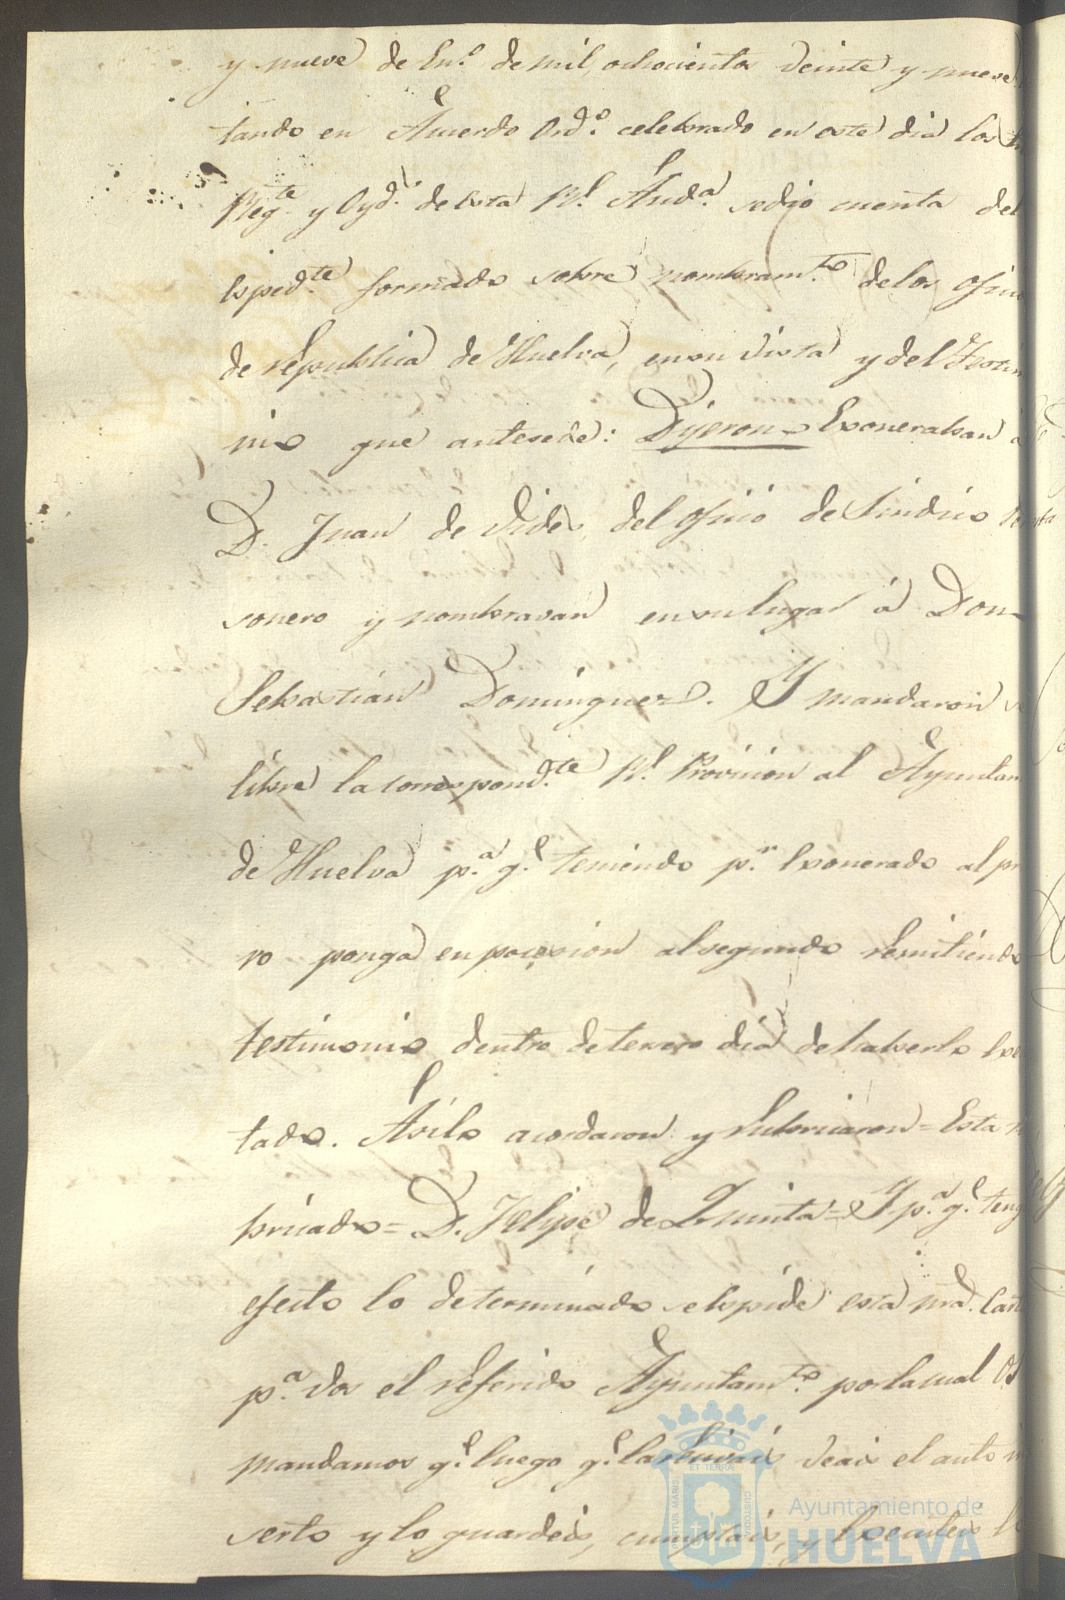 y nueve de En.º de mil, ochocientos veinte y nueve
tando en Acuerdo Ord.º celebrado en este dia los
Reg.te y Oyd.s de esta Rl. Aud.a se dio cuenta del
Esped.te formado sobre nombram.to de los ofici
de republica de Huelva, en su vista y del Testim
nio que antesede: Dijeron Exoneraban a
D. Juan de Vides, del oficio de Sindico
sonero y nombravan en su lugar á Don
Sebastián Dominguez. Y mandaron se
libre la correspond.te Rl. Provicion al Ayuntam
de Huelva p.a q.e teniendo p.r Exonerado al pr
ro ponga en pocesion al segundo remitiendo
testimonio dentro de tersero dia de haberlo Exe
tado. Asi lo acordaron y rubricaron = Esta
bricado = D. Felipe de Quinta = Y p.a q.e teng
efecto lo determinado se espide esta nra. Cart
p.a vos el referido Ayuntam.to por la cual Os
mandamos q.e luego q.e la resivais veais el auto in
serto y lo guardeis, cumplais, y Executeis
Ayuntamiento de
HUELVA